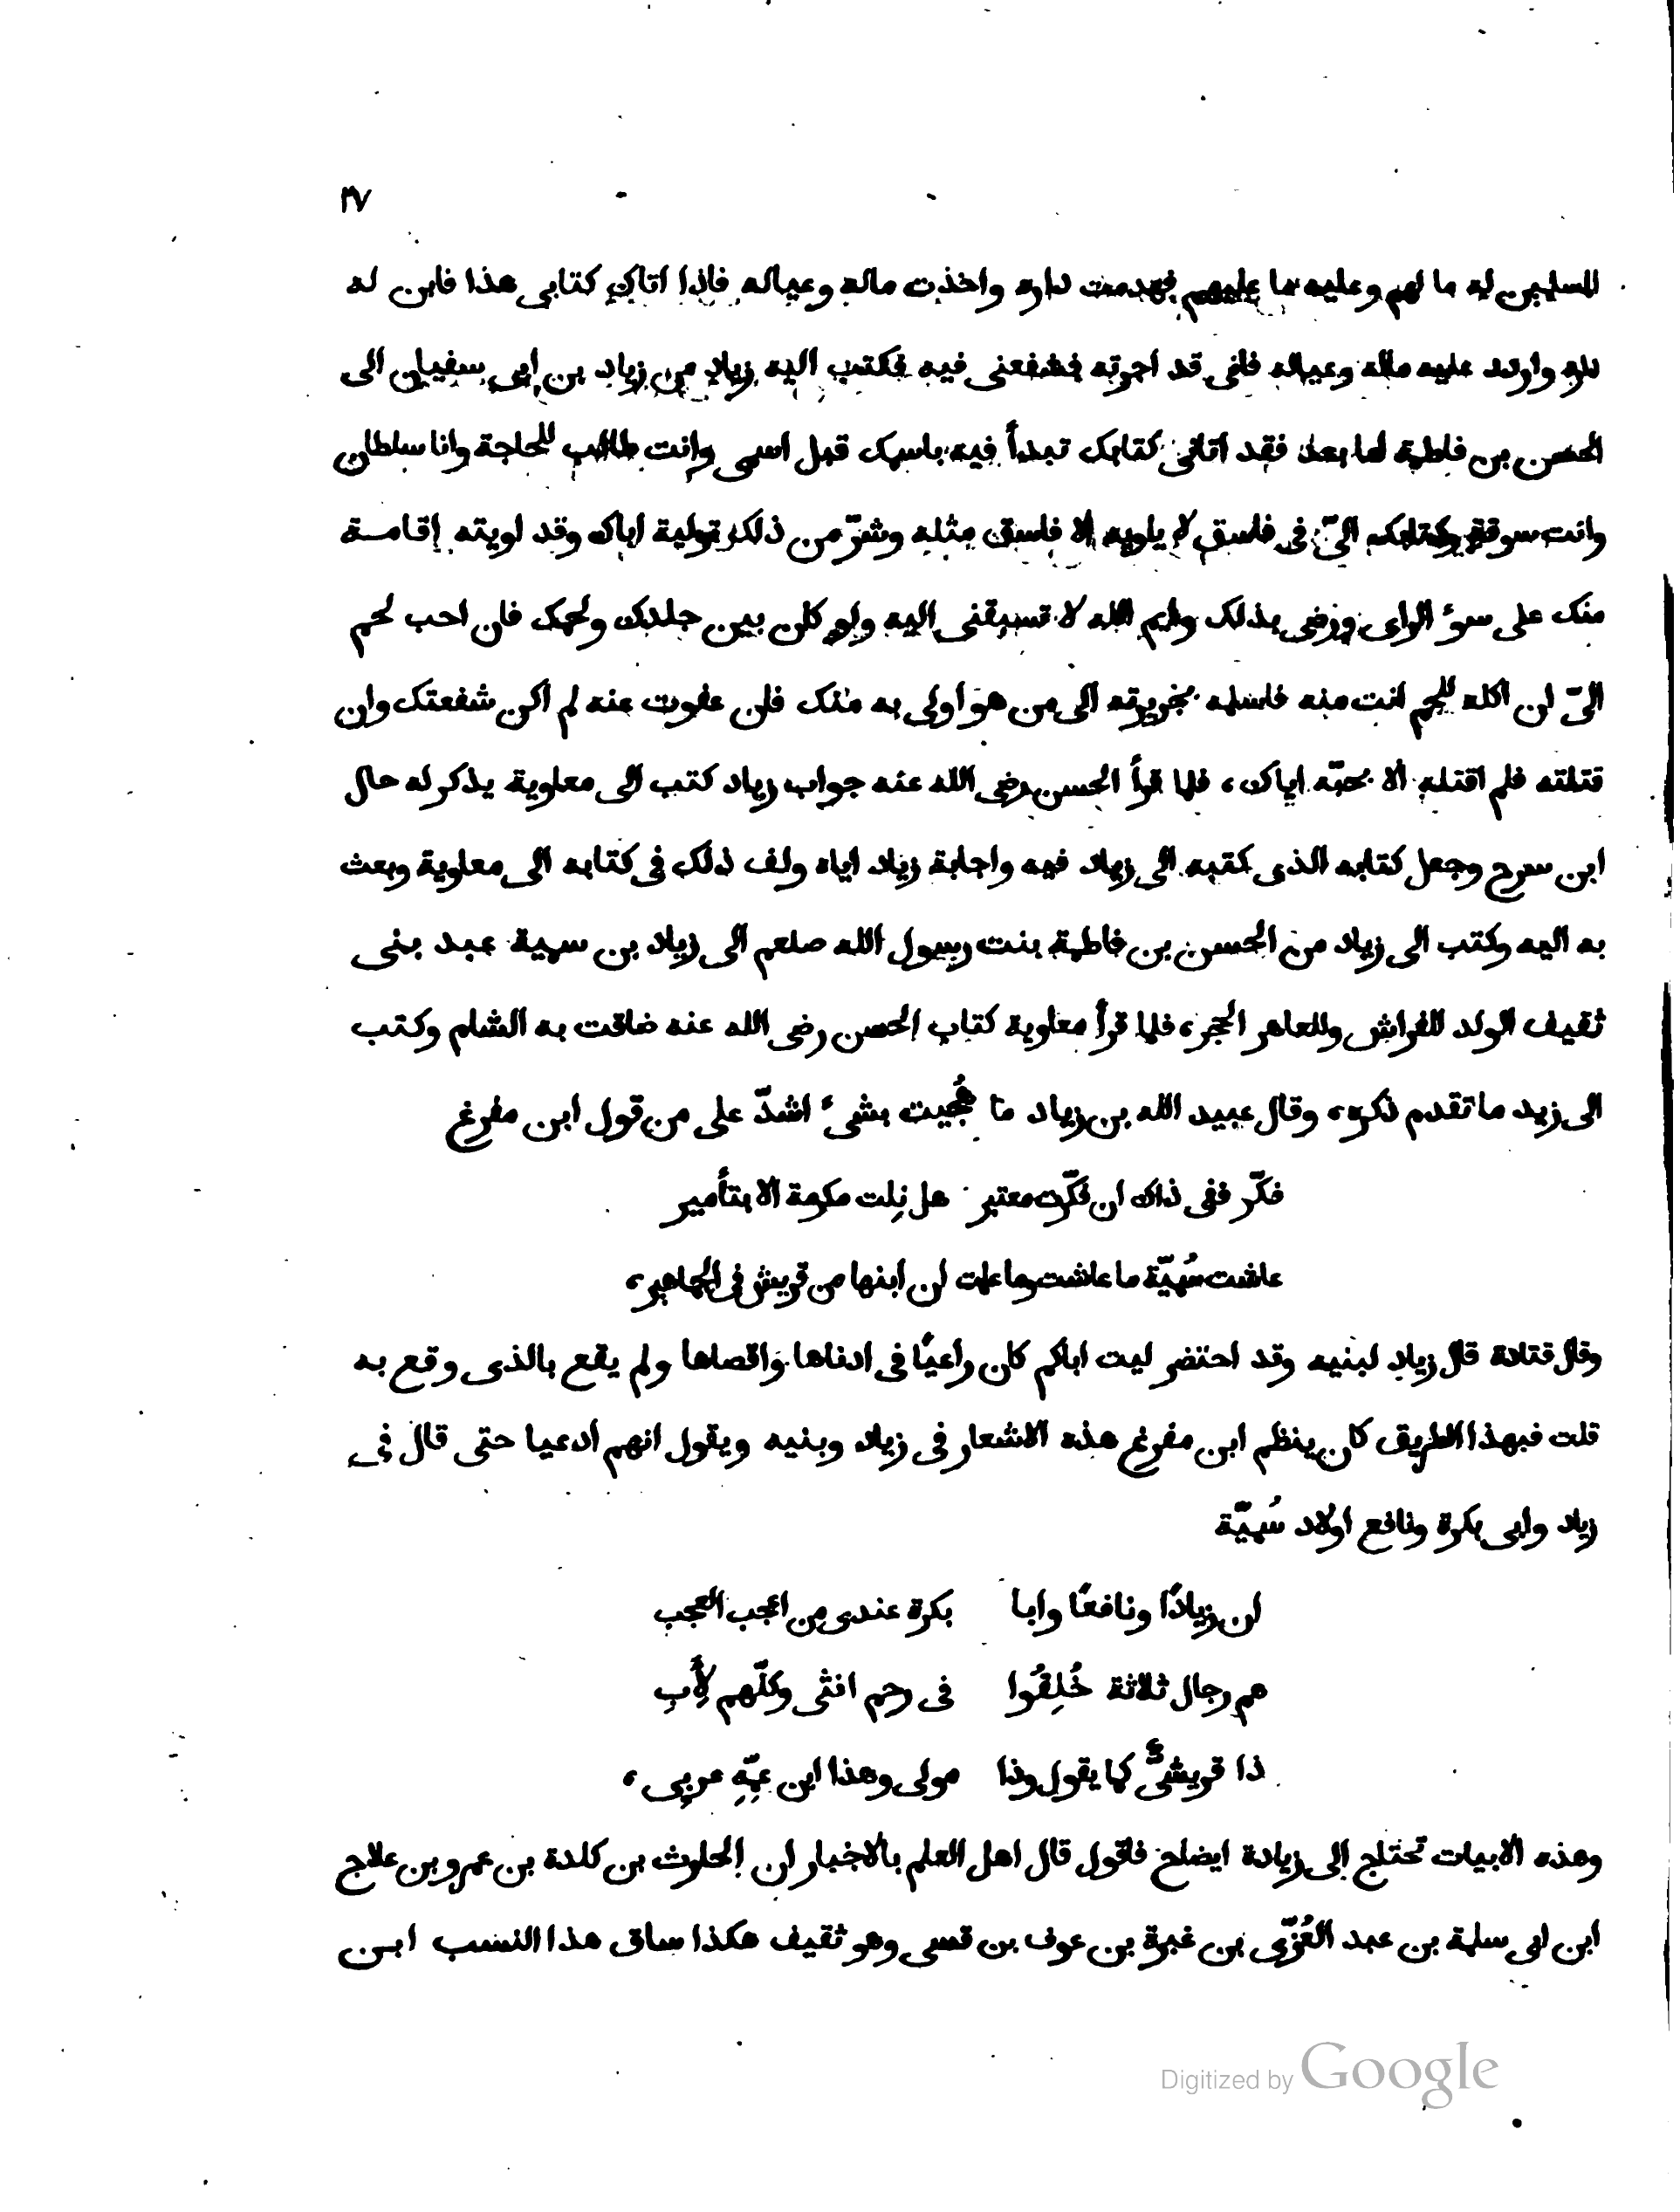 ٢٧
للمسلمين له ما لهم وعليه ما عليهم فهدمت داره واخذت ماله وعياله فاذا اتاك كتابى هذا فابن له
داره واردد عليه ماله وعياله فانى قد اجرته فشفعنى فيه فكتب اليه زياد من زياد بن ابى سفيان الى
الحسن بن فاطمة اما بعد فقد اتانى كتابك تبدأ فيه باسمك قبل اسمى وانت طالب للحاجة وانا سلطان
وانت سوقة وكتابك الىّ فى فاسق لا ياويه الا فاسق مثله وشرّ من ذلك توليه اباك وقد اويته إقامة
منك على سوء الراى ورضى بذلك وايم الله لا تسبقنى اليه ولو كان بين جلدك ولحمك فان احب لحم
الىّ ان اكله للحم انت منه فاسلمه بجريرته الى من هو اولى به منك فان عفوت عنه لم اكن شفعتك وان
قتلته فلم اقتله الا بحبّه اياك، فلما قرأ الحسن رضى الله عنه جواب زياد كتب الى معاوية يذكر له حال
ابن سرح وجعل كتابه الذى كتبه الى زياد فيه واجابة زياد اياه ولف ذلك فى كتابه الى معاوية وبعث
به اليه وكتب الى زياد من الحسن بن فاطمة بنت رسول الله صلعم الى زياد بن سمية عبد بنى
ثقيف الولد للفراش وللعاهر الحجر، فلما قرأ معاوية كتاب الحسن رضى الله عنه ضاقت به الشام وكتب
الى زيد ما تقدم ذكره، وقال عبيد الله بن زياد ما هُجيت بشىء اشدّ على من قول ابن مفرغ
فكّر ففى ذاك ان فكّرت معتبر هل نِلت مكرمة الا بتأمير
عاشت سُميّة ما عاشت وما علمت ان ابنها من قريش فى الجماهير،
وقال قتادة قال زياد لبنيه وقد احتضر ليت اباكم كان راعيًا فى ادناها واقصاها ولم يقع بالذى وقع به
قلت فبهذا الطريق كان ينظم ابن مفرغ هذه الاشعار فى زياد وبنيه ويقول انهم ادعيا حتى قال فى
زياد وابى بكرة ونافع اولاد سُميّة
ان زيادًا ونافعًا وابا بكرة عندى من اعجب العجب
هم رجال ثلاثة خُلِقُوا فى رحم انثى وكلّهم لأَبِ
ذا قريشىٌّ كما يقول وذا مولى وهذا ابن عمِّهِ عربِى،
وهذه الابيات تحتاج الى زيادة ايضاح فاقول قال اهل العلم بالاخبار ان الحارث بن كلدة بن عمرو بن علاج
ابن ابى سلمة بن عبد العُزّى بن غيرة بن عوف بن قسى وهو ثقيف هكذا ساق هذا النسب ابن
Digitized by Google